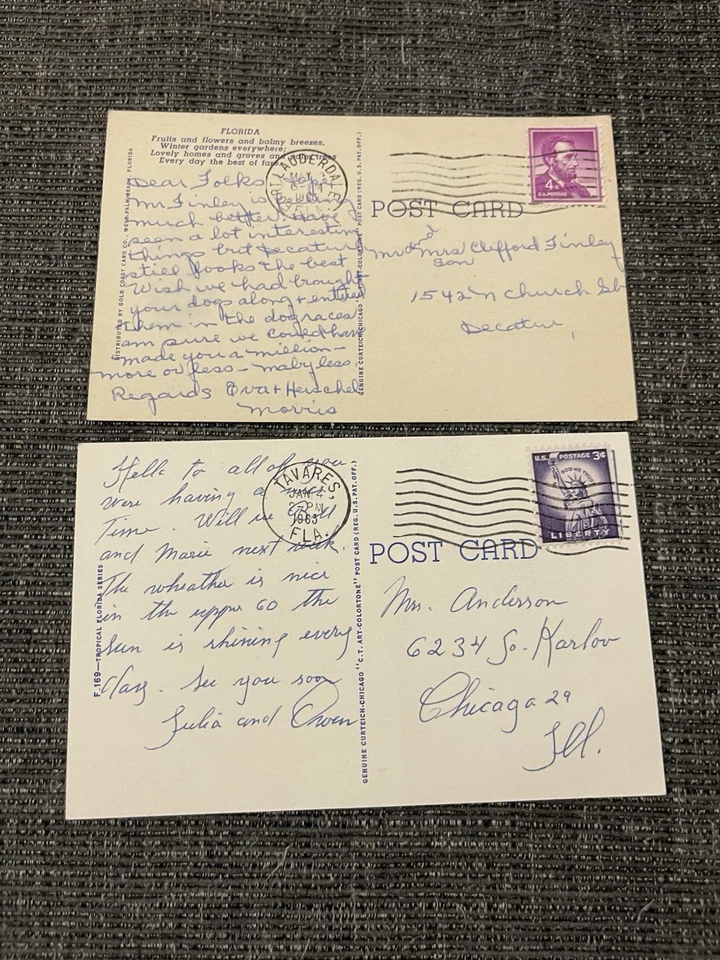 FLORIDA
Fruits and flowers and balmy breezes,
Winter gardens everywhere;
Lovely homes and groves and
Every day the best of
Dear Folks
Mr Finley is
much better. Have
seen a lot interesting
things but Decatur
still looks the best
Wish we had brought
your dogs along + entered
them in the dog races
am pure we could have
made you a million-
more or less - mabyless
Regards Eva + Herschel
Morris
DISTRIBUTED BY GOLD COAST CARD CO., WEST PALM BEACH, FLORIDA
GENUINE CURTEICH-CHICAGO "C.T. ART-COLORTONE" POST CARD (REG. U.S. PAT. OFF.)
LAUDERDA
4¢
U.S. POSTAGE
POST CARD
Mr and Mrs Clifford Finley
son
1542 N Church St
Decatur
Hello to all of you
were having a
Time. Will
and Marie next week.
The wheather is nice
in the upper 60 the
sun is shining every
day. See you soon
Julia and Owen
F.169—TROPICAL FLORIDA SERIES
GENUINE CURTEICH-CHICAGO "C.T. ART-COLORTONE" POST CARD (REG. U.S. PAT. OFF.)
TAVARES,
JAN 4
2-PM
1963
FLA.
U.S. POSTAGE 3¢
IN GOD WE TRUST
LIBERTY
POST CARD
Mrs. Anderson
6234 So. Karlov
Chicago 29
Ill.